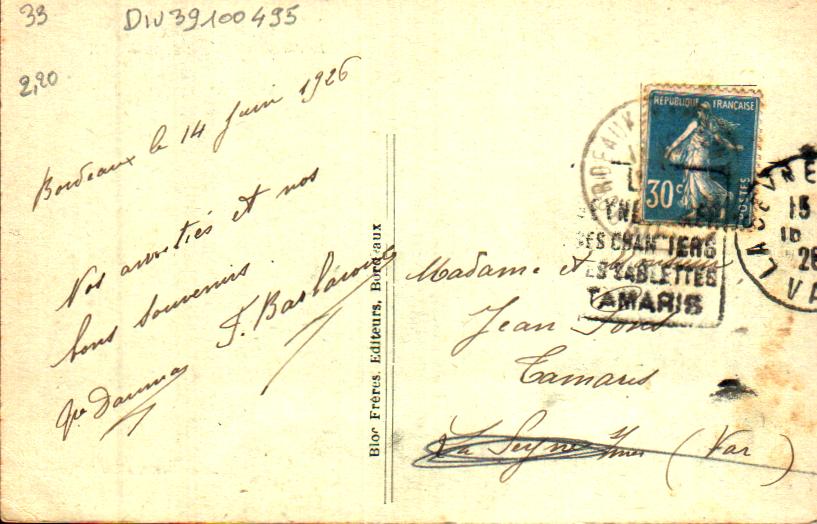 33
DIV39100495
2,20
Bordeaux le 14 Juin 1926
Nos amitiés et nos
bons souvenirs.
F. Barbaroux
Daumas
Bloc Frères, Editeurs, Bordeaux
REPUBLIQUE FRANÇAISE
30c
POSTES
BORDEAUX
SES CHANTIERS
LES SABLETTES
TAMARIS
LA SEYNE
15
16
26
VA
Madame et Monsieur
Jean Pons
Tamaris
La Seyne s/mer (Var)